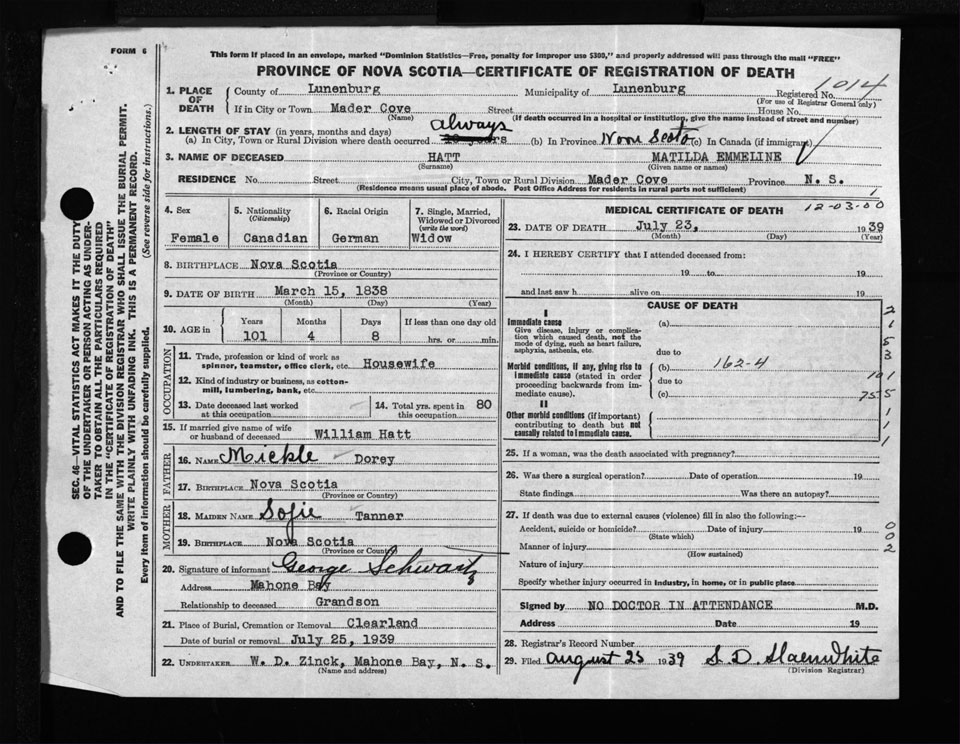 FORM 6
This form if placed in an envelope, marked "Dominion Statistics—Free, penalty for improper use $300," and properly addressed will pass through the mail "FREE"
PROVINCE OF NOVA SCOTIA—CERTIFICATE OF REGISTRATION OF DEATH
1014
1. PLACE OF DEATH
County of Lunenburg Municipality of Lunenburg Registered No.
(For use of Registrar General only)
If in City or Town Mader Cove Street House No.
(Name) (If death occurred in a hospital or institution, give the name instead of street and number)
2. LENGTH OF STAY (in years, months and days) always
(a) In City, Town or Rural Division where death occurred (b) In Province Nova Scotia (c) In Canada (if immigrant)
3. NAME OF DECEASED HATT MATILDA EMMELINE
(Surname) (Given name or names)
RESIDENCE No. Street City, Town or Rural Division Mader Cove Province N. S.
(Residence means usual place of abode. Post Office Address for residents in rural parts not sufficient) 1
4. Sex
Female
5. Nationality
(Citizenship)
Canadian
6. Racial Origin
German
7. Single, Married, Widowed or Divorced
(write the word)
Widow
8. BIRTHPLACE Nova Scotia
(Province or Country)
9. DATE OF BIRTH March 15, 1838
(Month) (Day) (Year)
10. AGE in Years Months Days If less than one day old
101 4 8 hrs. or min.
OCCUPATION
11. Trade, profession or kind of work as
spinner, teamster, office clerk, etc. Housewife
12. Kind of industry or business, as cotton-
mill, lumbering, bank, etc.
13. Date deceased last worked
at this occupation
14. Total yrs. spent in
this occupation 80
15. If married give name of wife
or husband of deceased William Hatt
FATHER
16. NAME Mickle Dorey
17. BIRTHPLACE Nova Scotia
(Province or Country)
MOTHER
18. MAIDEN NAME Sofie Tanner
19. BIRTHPLACE Nova Scotia
(Province or Country)
20. Signature of informant George Schwartz
Address Mahone Bay
Relationship to deceased Grandson
21. Place of Burial, Cremation or Removal Clearland
Date of burial or removal July 25, 1939
22. UNDERTAKER W. D. Zinck, Mahone Bay, N. S.
(Name and address)
MEDICAL CERTIFICATE OF DEATH 12-03-00
23. DATE OF DEATH July 23, 1939
(Month) (Day) (Year)
24. I HEREBY CERTIFY that I attended deceased from:
19 to 19
and last saw h alive on 19
CAUSE OF DEATH
I
Immediate cause
Give disease, injury or complica-
tion which caused death, not the
mode of dying, such as heart failure,
asphyxia, asthenia, etc.
(a)
due to
Morbid conditions, if any, giving rise to
immediate cause (stated in order
proceeding backwards from im-
mediate cause).
(b) 162-4
due to 101
(c) 755
II
Other morbid conditions (if important)
contributing to death but not
causally related to immediate cause.
2
1
5
3
1
1
1
25. If a woman, was the death associated with pregnancy?
26. Was there a surgical operation? Date of operation 19
State findings Was there an autopsy?
27. If death was due to external causes (violence) fill in also the following:—
Accident, suicide or homicide? Date of injury 19 0
(State which)
Manner of injury 0
(How sustained) 2
Nature of injury
Specify whether injury occurred in industry, in home, or in public place
Signed by NO DOCTOR IN ATTENDANCE M.D.
Address Date 19
28. Registrar's Record Number
29. Filed August 25 1939 S. D.
(Division Registrar)
SEC. 46—VITAL STATISTICS ACT MAKES IT THE DUTY
OF THE UNDERTAKER OR PERSON ACTING AS UNDER-
TAKER TO OBTAIN ALL THE PARTICULARS REQUIRED
IN THE "CERTIFICATE OF REGISTRATION OF DEATH"
AND TO FILE THE SAME WITH THE DIVISION REGISTRAR WHO SHALL ISSUE THE BURIAL PERMIT.
WRITE PLAINLY WITH UNFADING INK. THIS IS A PERMANENT RECORD.
Every item of information should be carefully supplied. (See reverse side for instructions.)